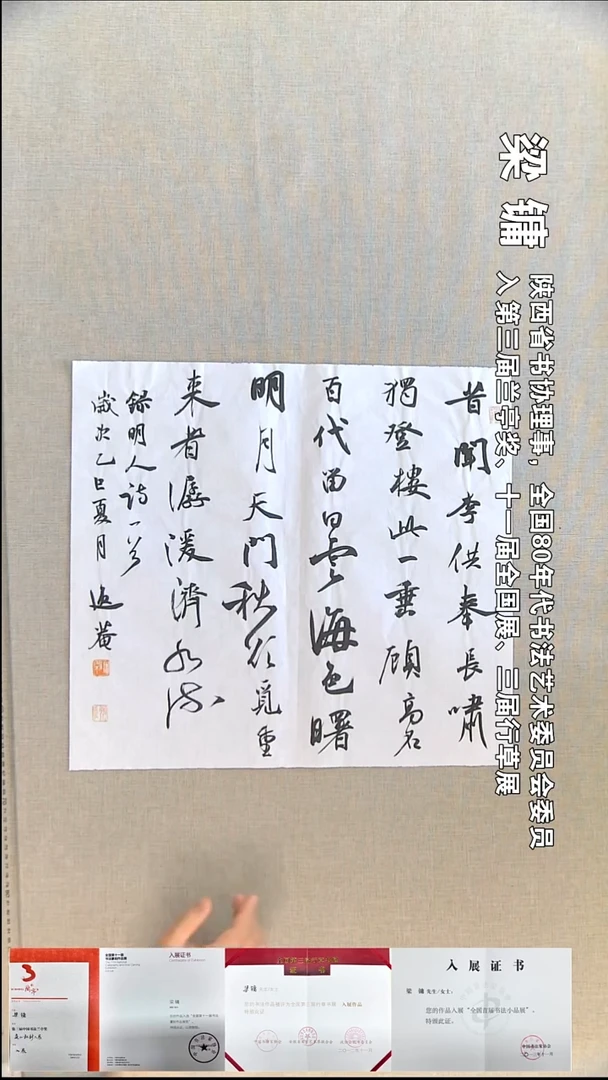 梁镛
陕西省书协理事，全国80年代书法艺术委员会委员
入第三届兰亭奖、十一届全国展、三届行草展
昔聞李供奉長嘯
獨登樓此一垂顧高名
百代留白雲海色曙
明月天門秋欲覓重
來者潺湲濟水流
錄明人詩一首
歲次乙巳夏月 菴
3
入展证书
证书
入展证书
梁镛 先生/女士：
您的作品入展“全国首届书法小品展”，
特颁此证。